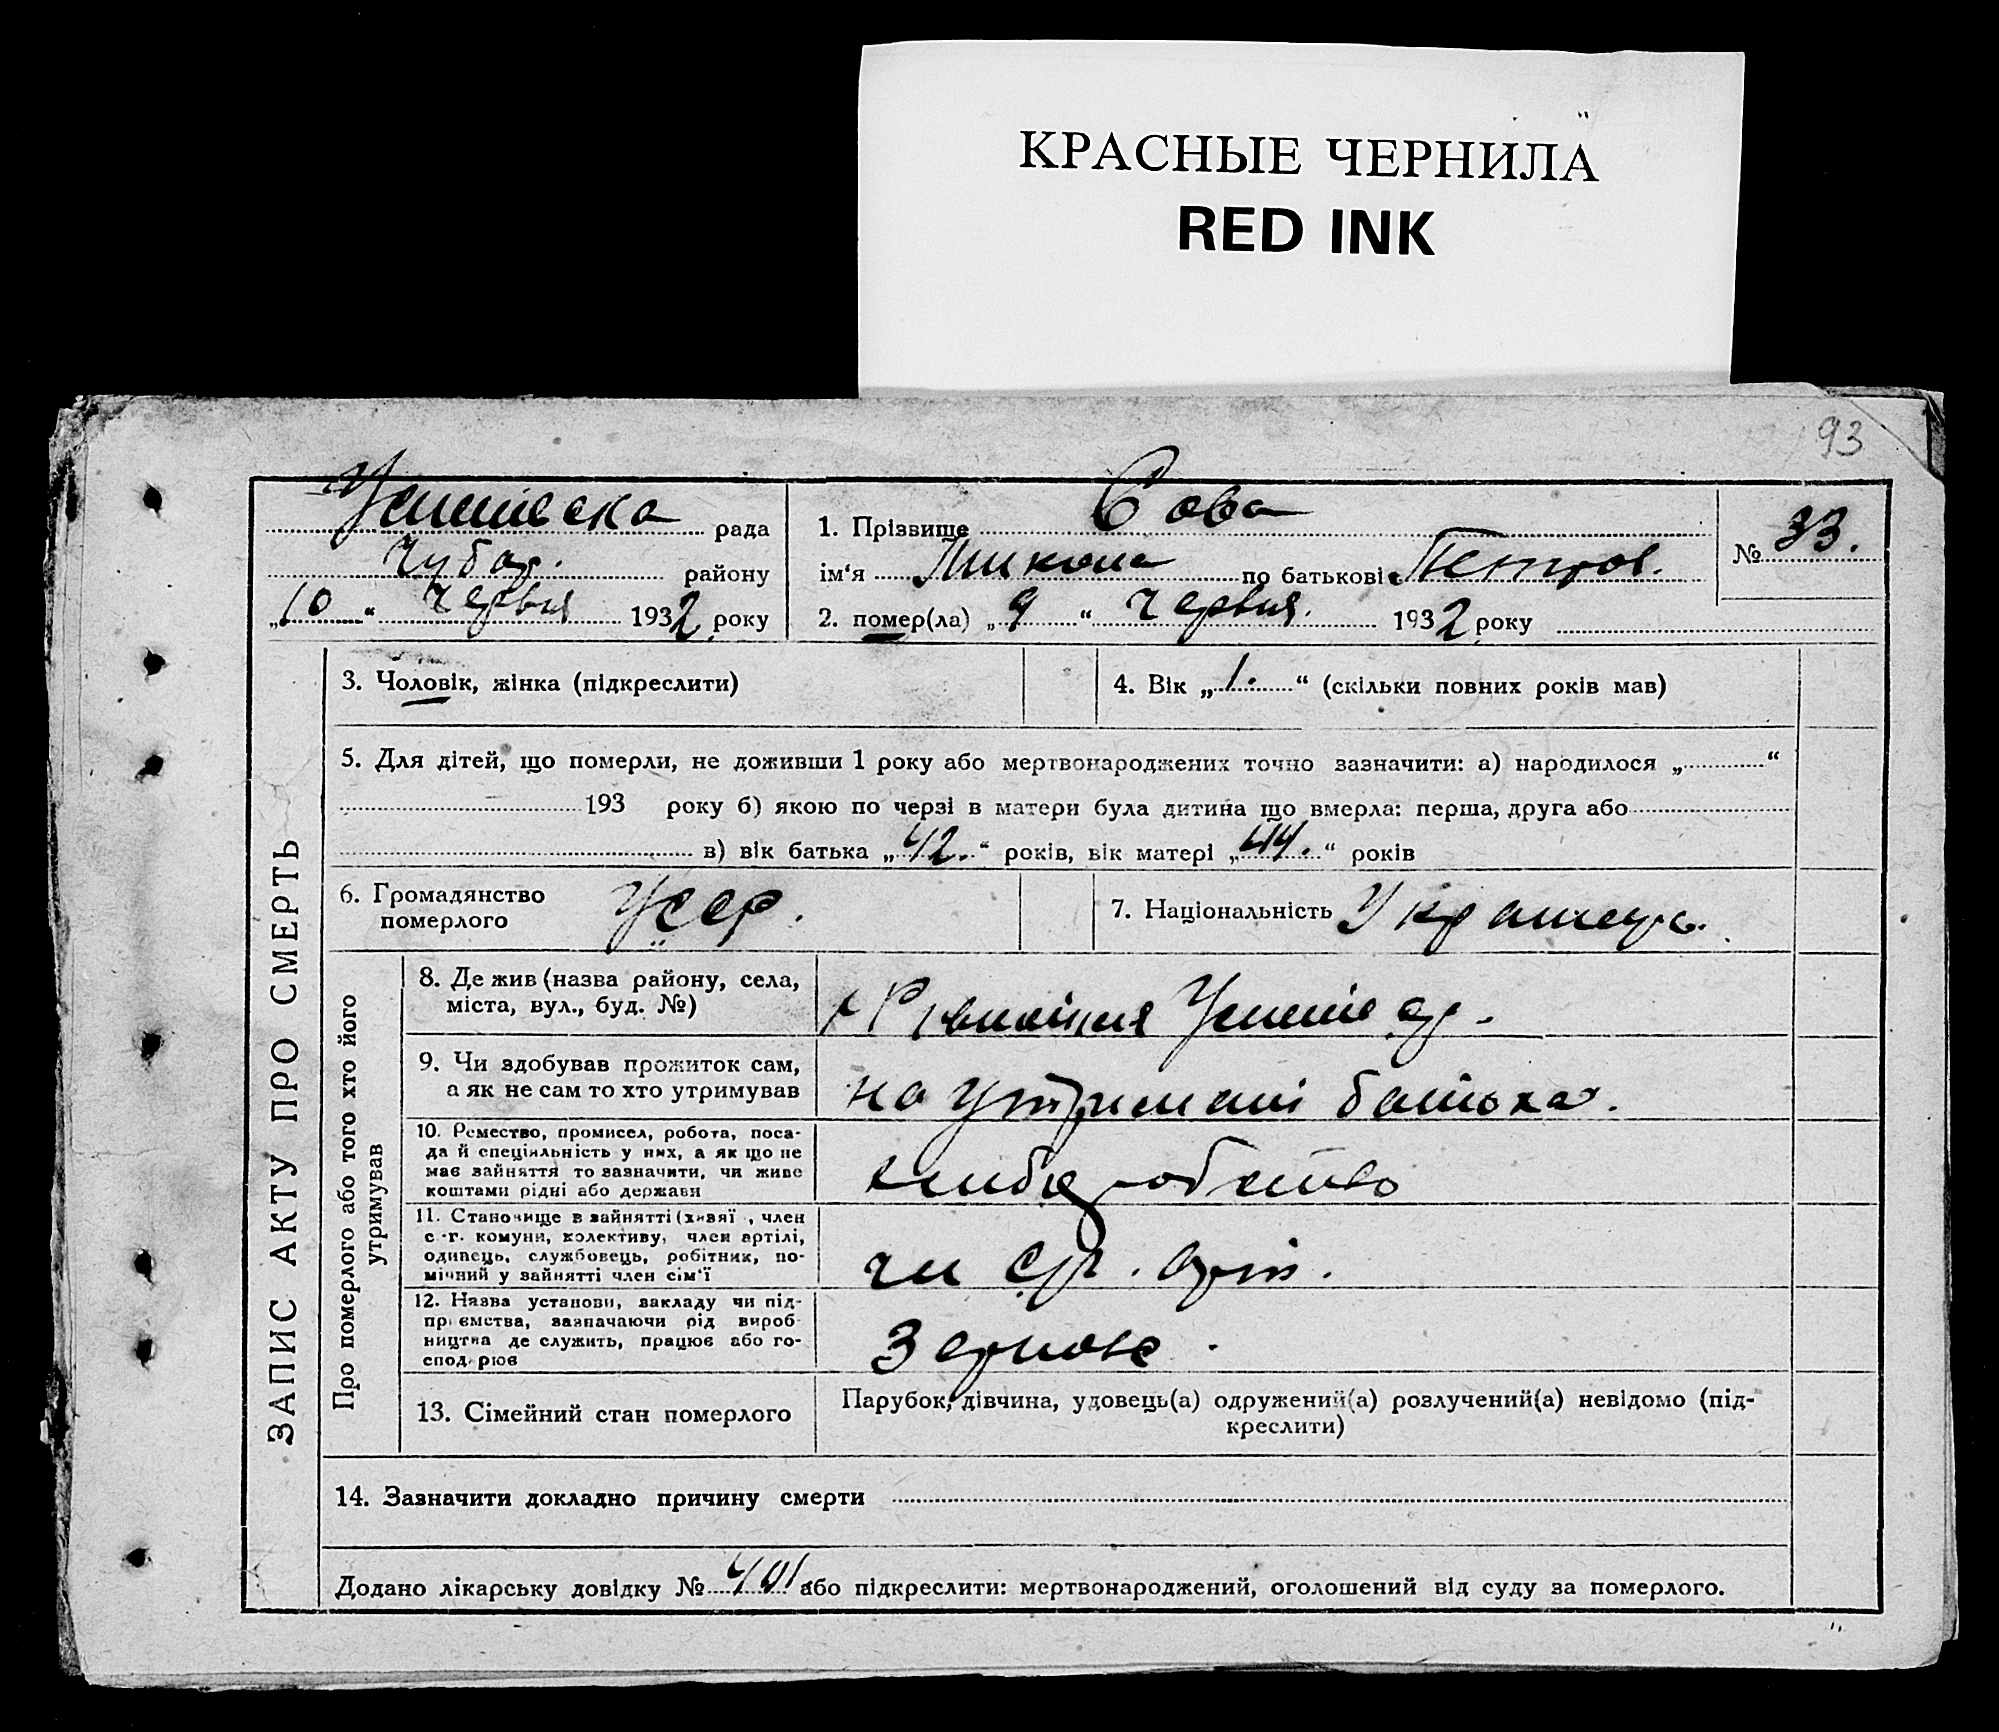 КРАСНЫЕ ЧЕРНИЛА
RED INK
93
рада
Чубар. району
„10“ Червня 1932 року
1. Прізвище Сова
ім‘я Микола по батькові Петров.
2. помер(ла) „9“ Червня. 1932 року
№ 33.
ЗАПИС АКТУ ПРО СМЕРТЬ
3. Чоловік, жінка (підкреслити)
4. Вік „1.“ (скільки повних років мав)
5. Для дітей, що померли, не доживши 1 року або мертвонароджених точно зазначити: а) народилося „ “
193 року б) якою по черзі в матери була дитина що вмерла: перша, друга або
в) вік батька „42.“ років, вік матері „44.“ років
6. Громадянство
померлого УССР.
7. Національність Українець.
Про померлого або того хто його
утримував
8. Де жив (назва району, села,
міста, вул., буд. №)
9. Чи здобував прожиток сам,
а як не сам то хто утримував
на утриманні батька.
10. Ремество, промисел, робота, поса-
да й спеціяльність у них, а як що не
має зайняття то зазначити, чи живе
коштами рідні або держави
хліборобство
11. Становище в зайнятті (хазяї , член
с-г. комуни, колективу, член артілі,
одинець, службовець, робітник, по-
мічний у зайнятті член сім‘ї
чл. с/г. арт.
12. Назва установи, закладу чи під-
приємства, зазначаючи рід вироб-
ництва де служить, працює або го-
сподарює
Зернове.
13. Сімейний стан померлого
Парубок, дівчина, удовець(а) одружений(а) розлучений(а) невідомо (під-
креслити)
14. Зазначити докладно причину смерти
Додано лікарську довідку № 401 або підкреслити: мертвонароджений, оголошений від суду за померлого.